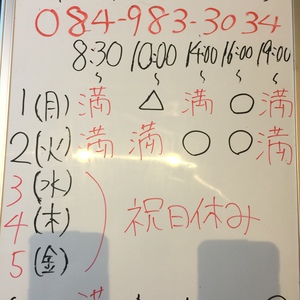 084-983-3034
8:30 10:00 14:00 16:00 19:00
〜 〜 〜 〜 〜
1(月) 満 △ 満 ○ 満
2(火) 満 満 ○ ○ 満
3(水)
4(木) 祝日休み
5(金)
満